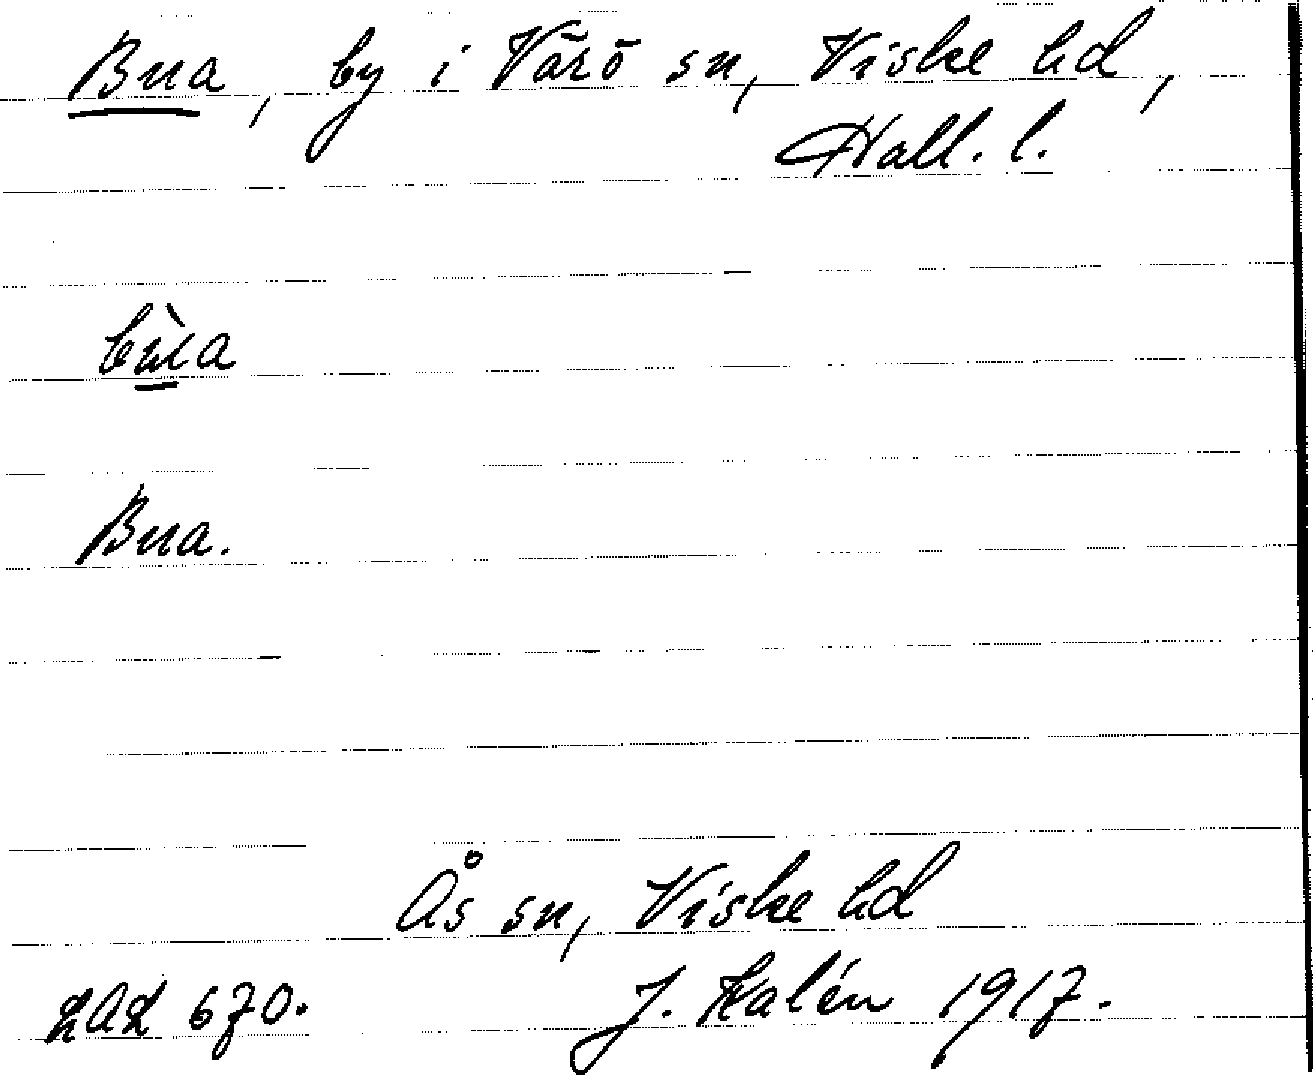 Bua, by i Värö sn, Viske hd,
Hall. l.
bùa
Bua.
Ås sn, Viske hd
LAL 670. J. Kalén 1917.